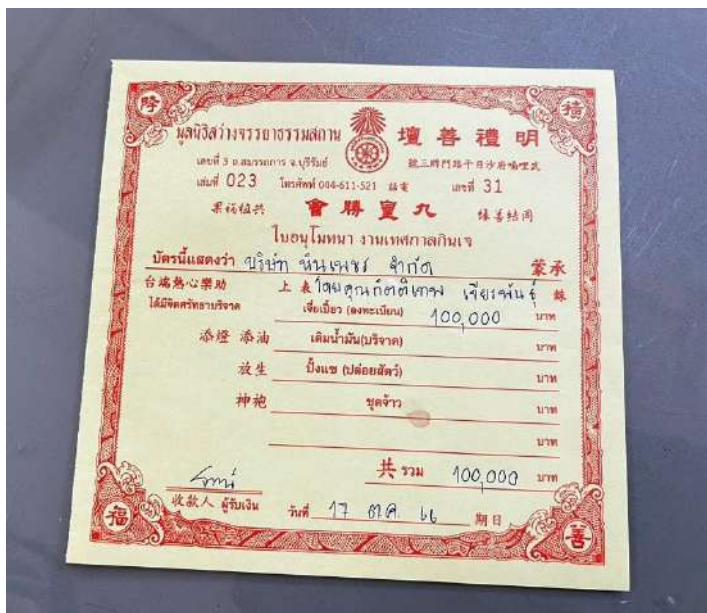 隆 禎
มูลนิธิสว่างจรรยาธรรมสถาน 壇善禮明
เลขที่ 3 ถ.สมรรถการ จ.บุรีรัมย์ 號三牌門路干月沙府喃哩武
เล่มที่ 023 โทรศัพท์ 044-611-521 話電 เลขที่ 31
果福植共 會勝皇九 緣善結同
ใบอนุโมทนา งานเทศกาลกินเจ
บัตรนี้แสดงว่า บริษัท หินเพชร จำกัด 蒙承
台端熱心樂助 上表 โดยคุณกิตติเทพ เจียรพันธุ์
ได้มีจิตศรัทธาบริจาค เจี่ยเปี้ยว (ลงทะเบียน) 100,000 บาท
添燈 添油 เติมน้ำมัน(บริจาค) บาท
放生 ปั้งแซ (ปล่อยสัตว์) บาท
神袍 ชุดจ้าว บาท
บาท
共 รวม 100,000 บาท
收款人 ผู้รับเงิน วันที่ 17 ต.ค. 66 期日
福 善